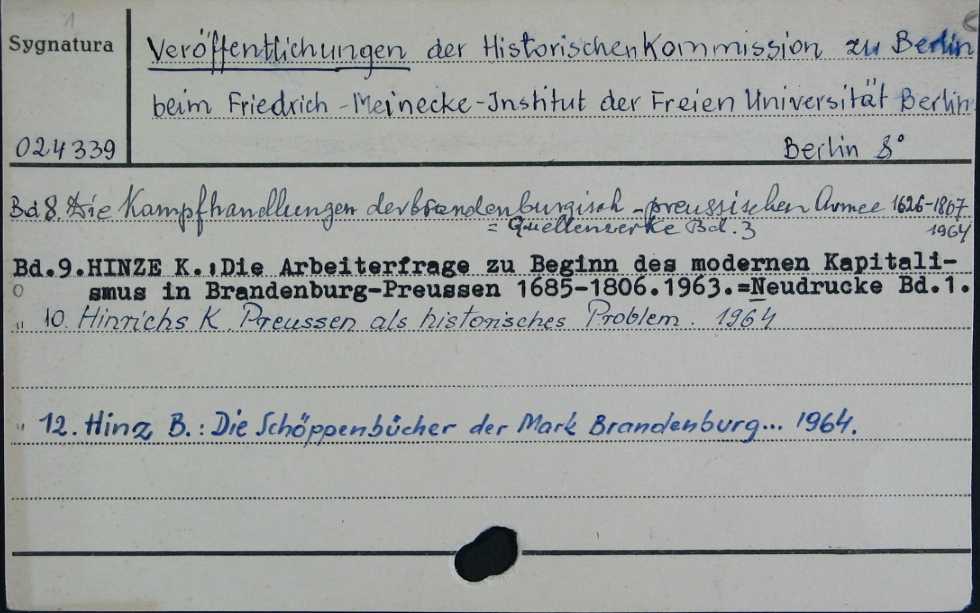 1
Sygnatura
Veröffentlichungen der Historischen Kommission zu Berlin
beim Friedrich-Meinecke-Institut der Freien Universität Berlin
024339
Berlin 8°
Bd 8. Die Kampfhandlungen der brandenburgisch-preussischen Armee 1626-1807
= Quellenwerke Bd. 3 1964
Bd.9.HINZE K.:Die Arbeiterfrage zu Beginn des modernen Kapitali-
smus in Brandenburg-Preussen 1685-1806.1963.=Neudrucke Bd.1.
" 10. Hinrichs K. Preussen als historisches Problem. 1964
" 12. Hinz B.: Die Schöppenbücher der Mark Brandenburg... 1964.